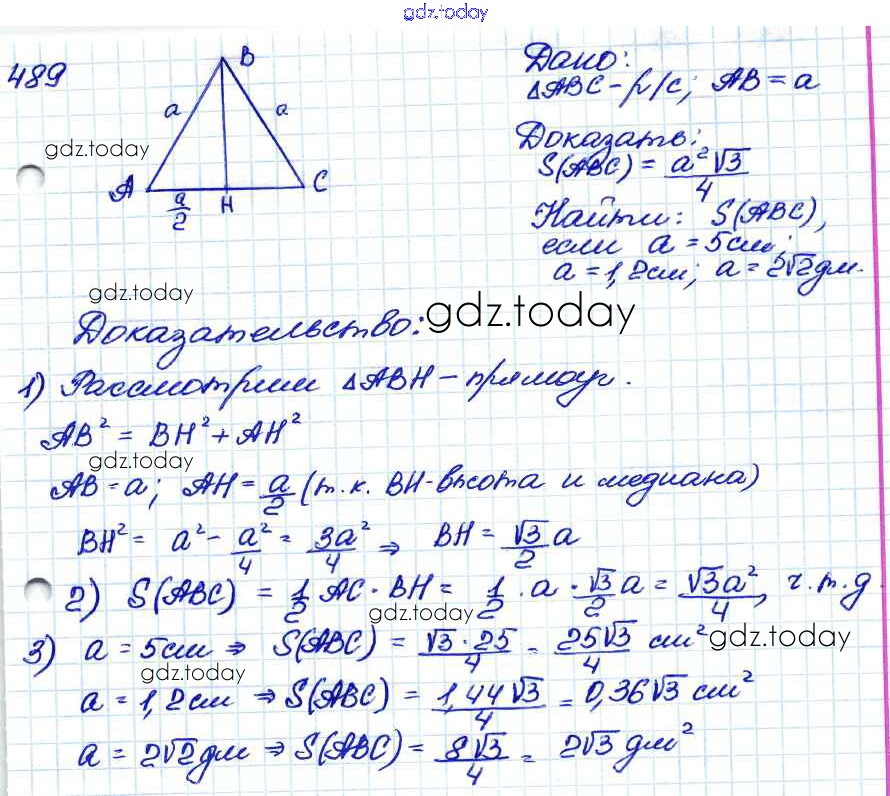 gdz.today
489
B
a
a
gdz.today
A
C
a/2
H
Дано:
△ABC - р/с; AB = a
Доказать:
S(ABC) = a²√3/4
Найти: S(ABC),
если a = 5см;
a = 1,2см; a = 2√2дм.
gdz.today
Доказательство:
gdz.today
1) Рассмотрим △ABH - прямоуг.
AB² = BH² + AH²
gdz.today
AB = a; AH = a/2 (т.к. BH-высота и медиана)
BH² = a² - a²/4 = 3a²/4 ⇒ BH = √3/2 a
2) S(ABC) = 1/2 AC · BH = 1/2 · a · √3/2 a = √3a²/4, ч.т.д
gdz.today
3) a = 5см ⇒ S(ABC) = √3·25/4 = 25√3/4 см²
gdz.today
gdz.today
a = 1,2см ⇒ S(ABC) = 1,44√3/4 = 0,36√3 см²
a = 2√2дм ⇒ S(ABC) = 8√3/4 = 2√3 дм²